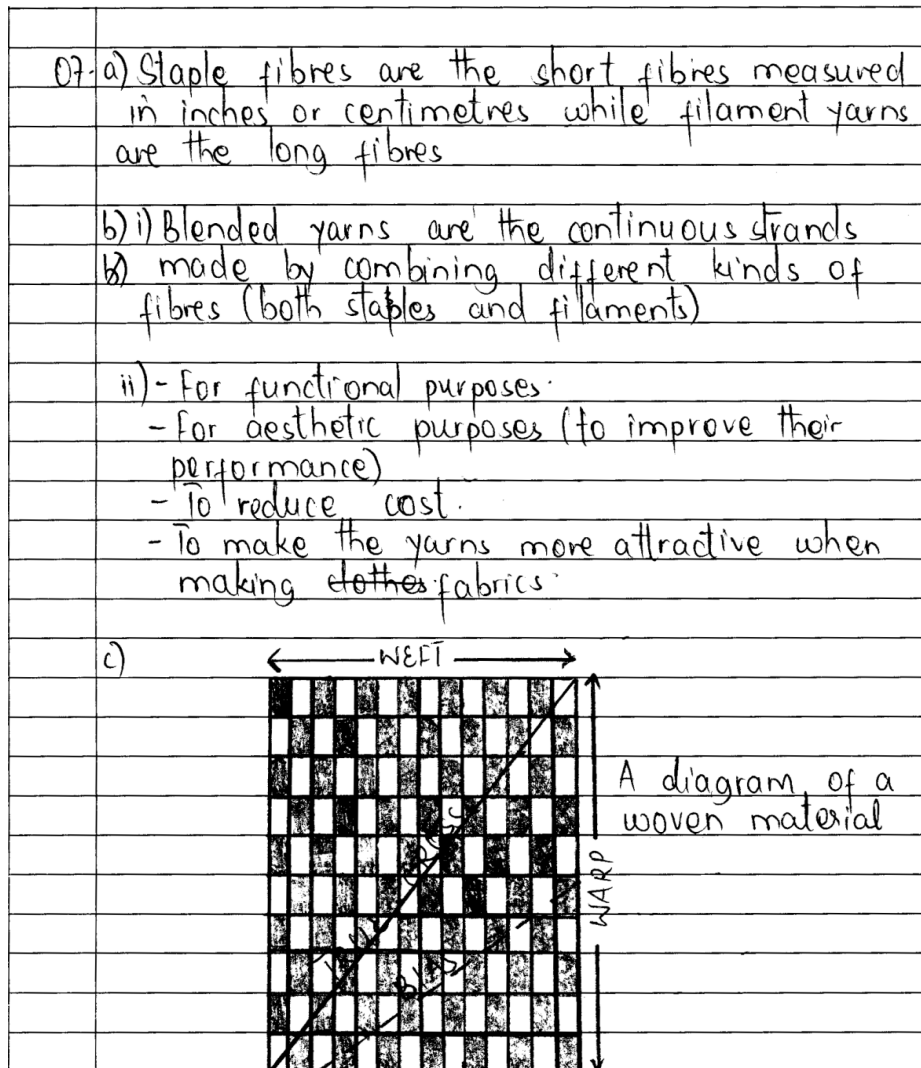 07. a) Staple fibres are the short fibres measured
in inches or centimetres while filament yarns
are the long fibres
b) i) Blended yarns are the continuous strands
made by combining different kinds of
fibres (both staples and filaments)
ii) - For functional purposes.
- For aesthetic purposes (to improve their
performance)
- To reduce cost.
- To make the yarns more attractive when
making clothes fabrics.
c)
WEFT
A diagram of a
woven material
WARP
TRUE CROSS
BIAS